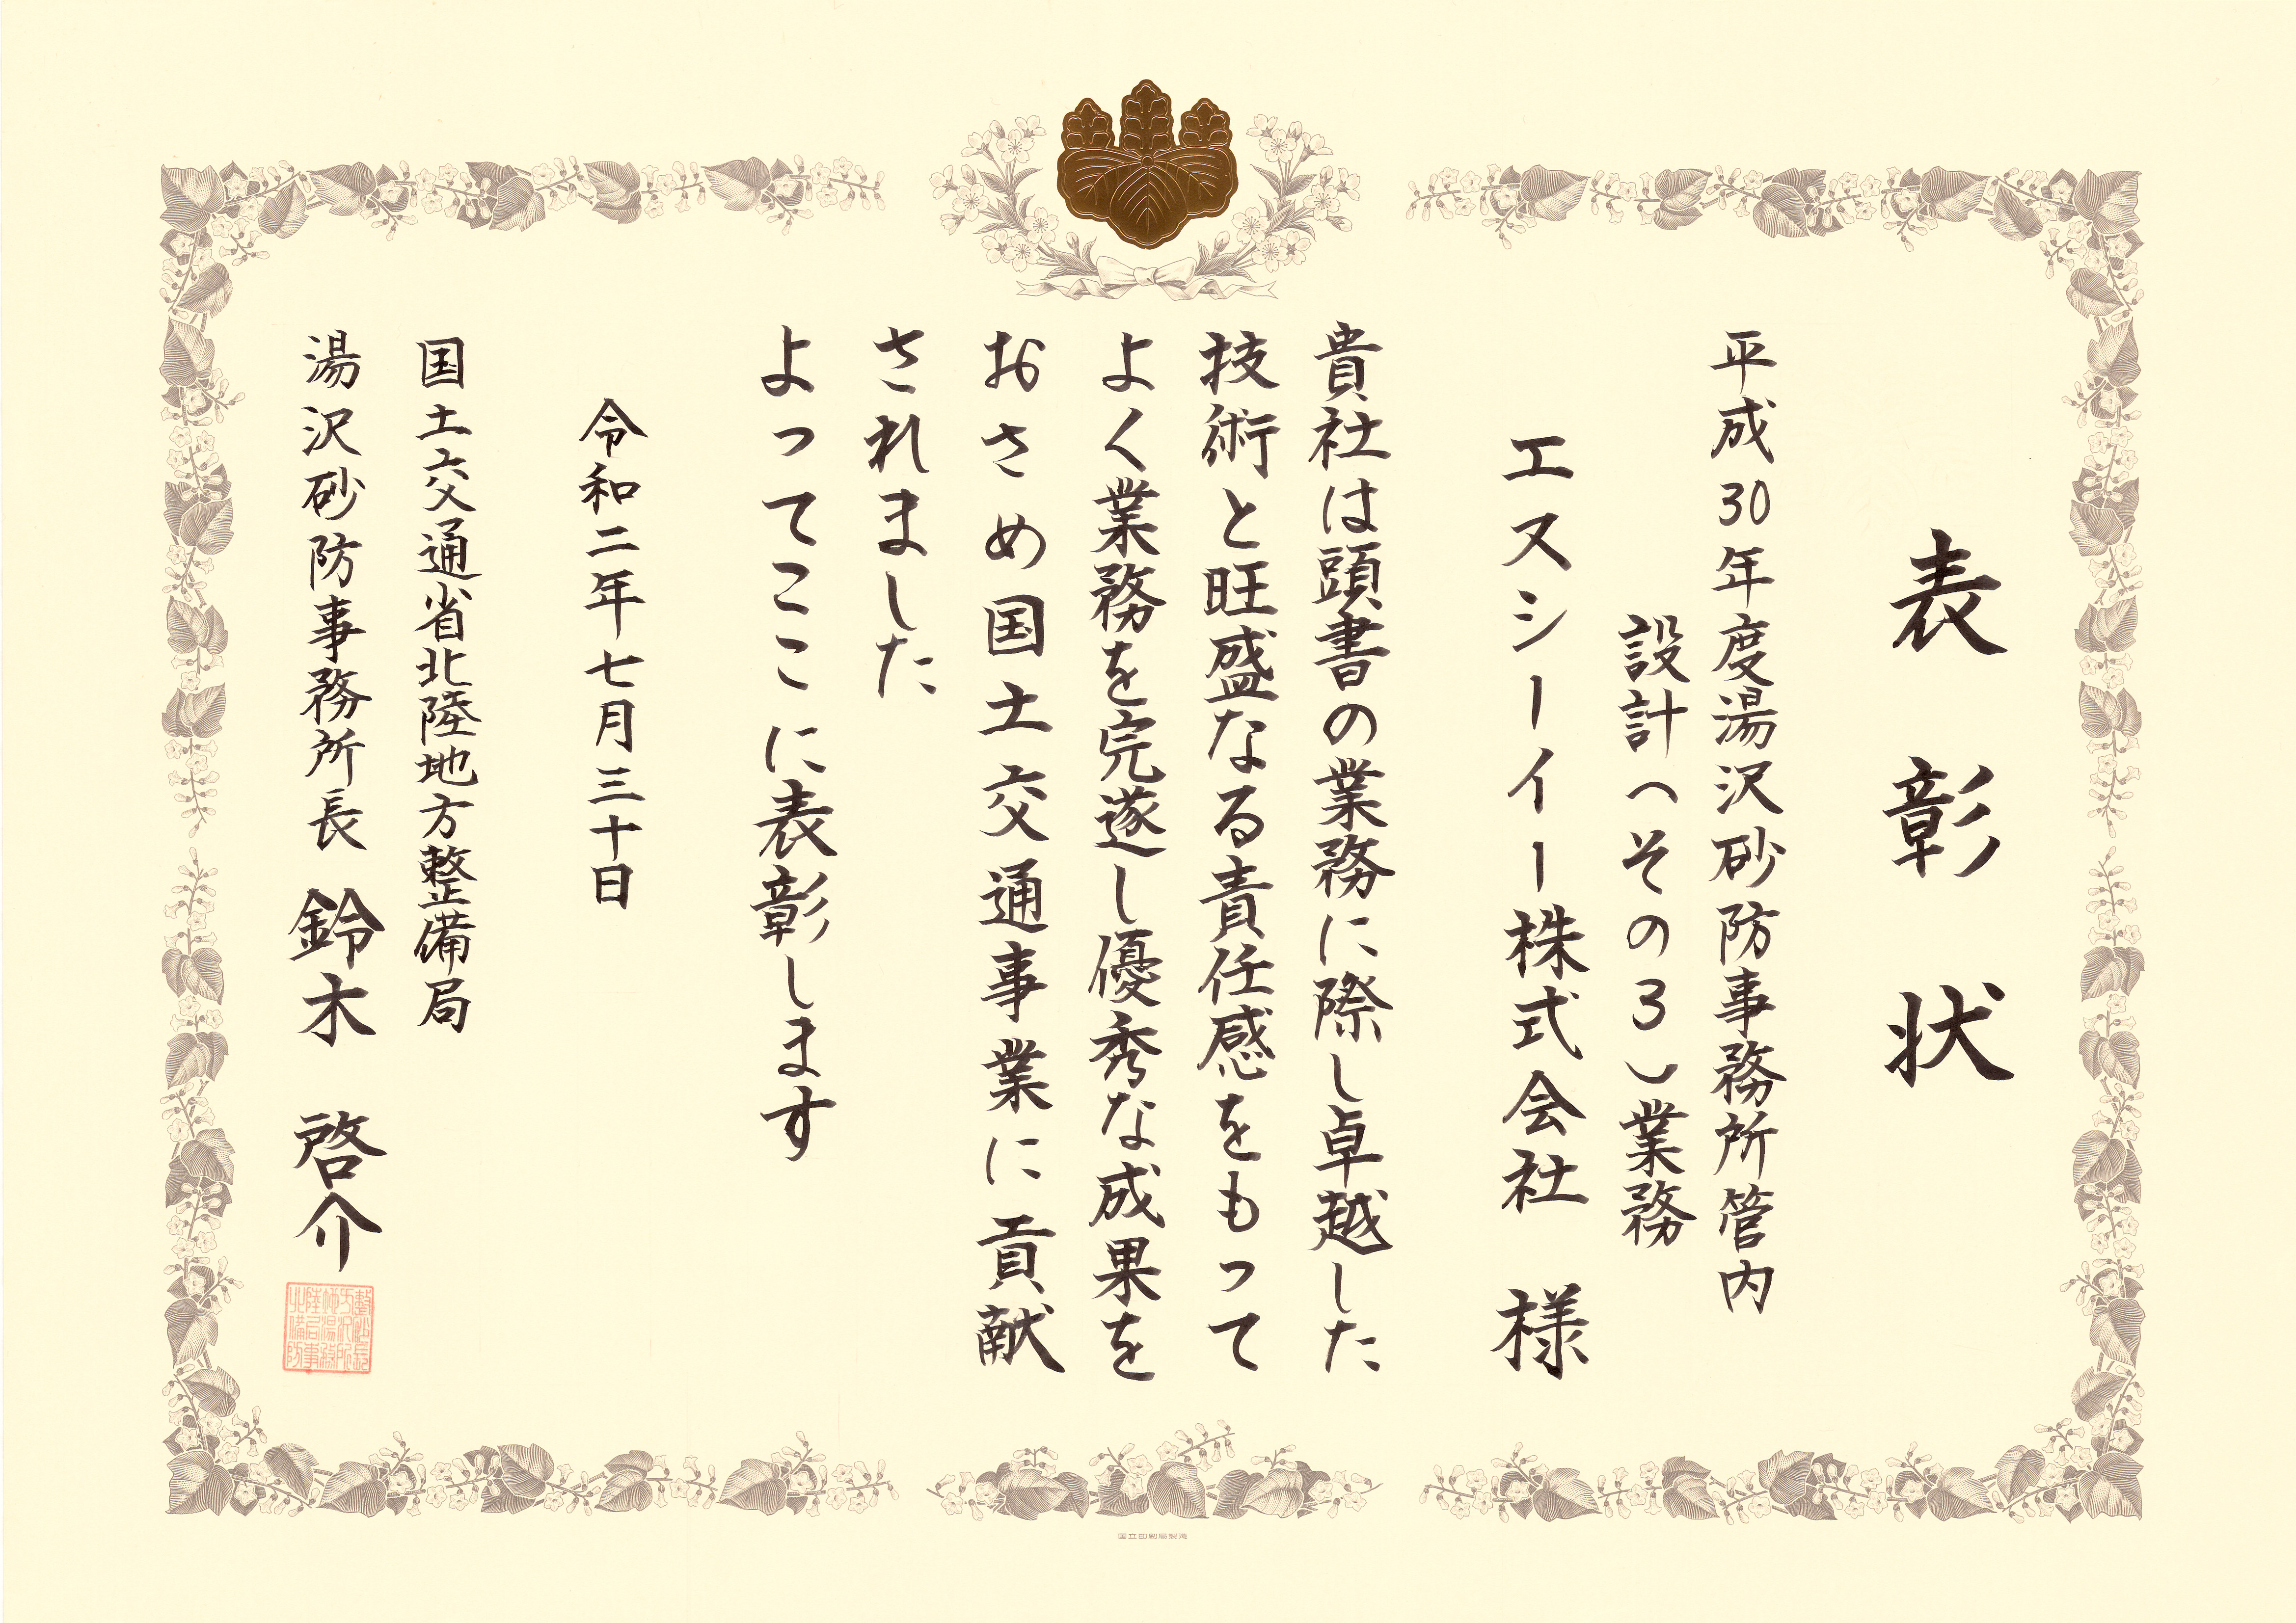 表彰状
平成30年度湯沢砂防事務所管内
設計(その3)業務
エスシーイー株式会社 様
貴社は頭書の業務に際し卓越した
技術と旺盛なる責任感をもって
よく業務を完遂し優秀な成果を
おさめ国土交通事業に貢献
されました
よってここに表彰します
令和二年七月三十日
国土交通省北陸地方整備局
湯沢砂防事務所長 鈴木 啓介
国立印刷局製造